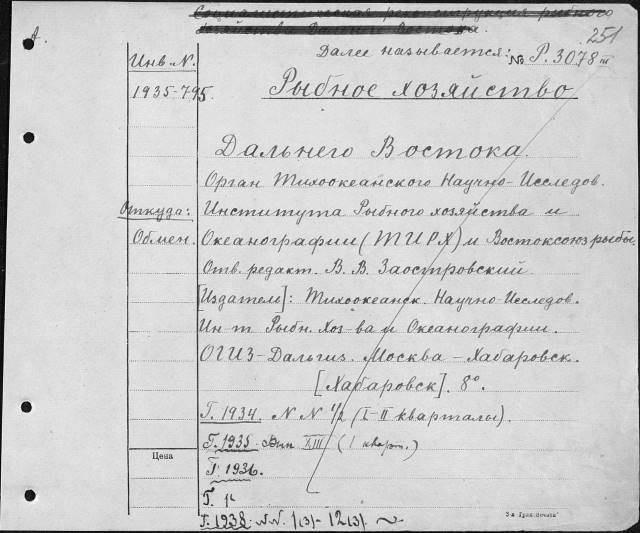 Социалистическая реконструкция рыбного
хозяйства Дальнего Востока.
251
А.
Далее называется: № Р. 3078 III
Инв. N.
1935-795.
Рыбное хозяйство
Дальнего Востока.
Орган Тихоокеанского Научно-Исследов.
Откуда: Института Рыбного хозяйства и
Обмен. Океанографии (ТИРХ) и Востоксоюзрыбы.
Отв. редакт. В. В. Заостровский.
[Издатель]: Тихоокеанск. Научно-Исследов.
Ин-т Рыбн. Хоз-ва и Океанографии.
ОГИЗ-Дальгиз. Москва - Хабаровск.
[Хабаровск]. 8°.
Г. 1934. N N 1/2 (I-II кварталы).
Г. 1935. Вып I, III (1 кварт.)
Цена
Г 1936.
Г.
Г. 1938. N. N. 1(3)- 12(3)